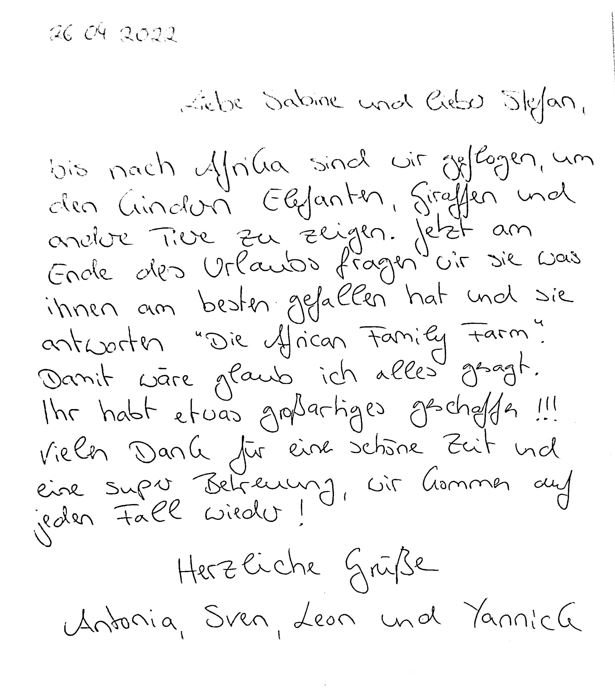 26 04 2022
Liebe Sabine und lieber Stefan,
bis nach Afrika sind wir geflogen, um
den Kindern Elefanten, Giraffen und
andere Tiere zu zeigen. Jetzt am
Ende des Urlaubs fragen wir sie was
ihnen am besten gefallen hat und sie
antworten "Die African Family Farm".
Damit wäre glaub ich alles gesagt.
Ihr habt etwas großartiges geschaffen !!!
Vielen Dank für eine schöne Zeit und
eine super Betreuung, wir kommen auf
jeden Fall wieder !
Herzliche Grüße
Antonia, Sven, Leon und Yannick